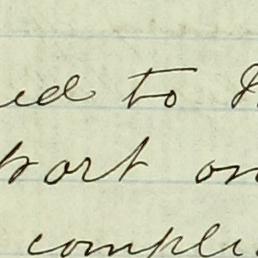 ed to
port on
compli